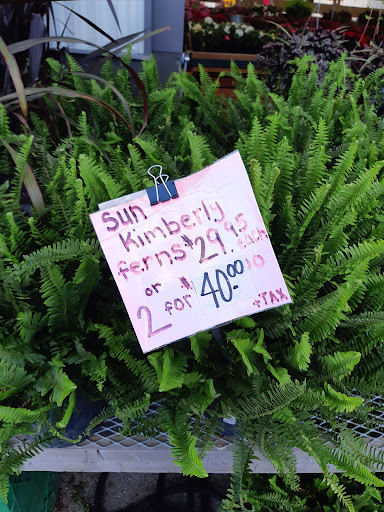 sun
Kimberly
ferns $29.95 each
or
2 for $40.00
+TAX